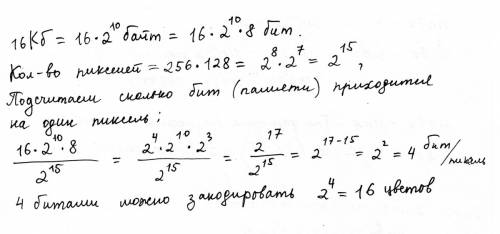 16 Кб = 16 · 2^10 байт = 16 · 2^10 · 8 бит.
Кол-во пикселей = 256 · 128 = 2^8 · 2^7 = 2^15,
Подсчитаем сколько бит (памяти) приходится
на один пиксель:
16 · 2^10 · 8 / 2^15 = 2^4 · 2^10 · 2^3 / 2^15 = 2^17 / 2^15 = 2^17-15 = 2^2 = 4 бит/пиксель
4 битами можно закодировать 2^4 = 16 цветов